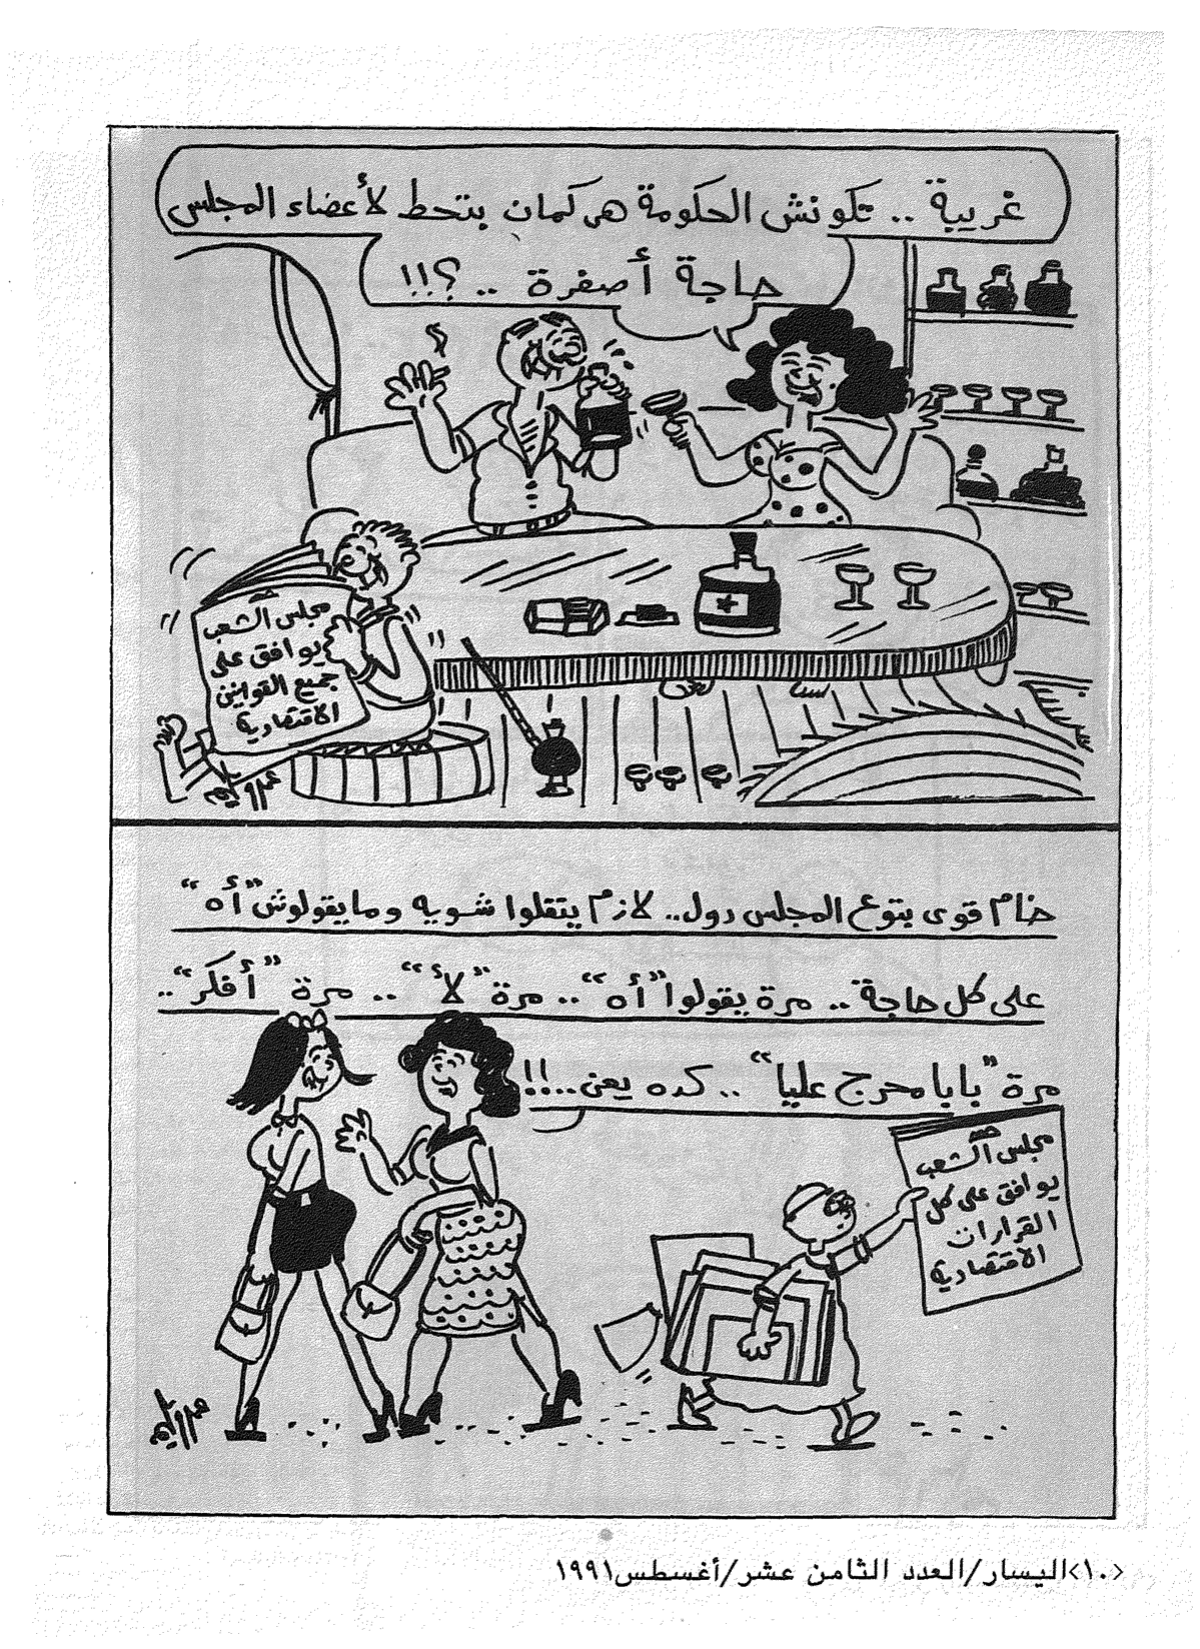 غريبة .. تكونش الحكومة هى كمان بتحط لأعضاء المجلس
حاجة أصفرة .. ؟!!
مجلس الشعب
يوافق على
جميع القوانين
الاقتصادية
عمرو سليم
خام قوى بتوع المجلس دول.. لازم يتقلوا شويه وما يقولوش "أه"
على كل حاجة .. مرة يقولوا "أه" .. مرة "لأ" .. مرة "أفكر" ..
مرة "بابا محرج عليا" .. كده يعنى..!!
مجلس الشعب
يوافق على كل
القرارات
الاقتصادية
عمرو سليم
<١٠>اليسار/العدد الثامن عشر/أغسطس١٩٩١